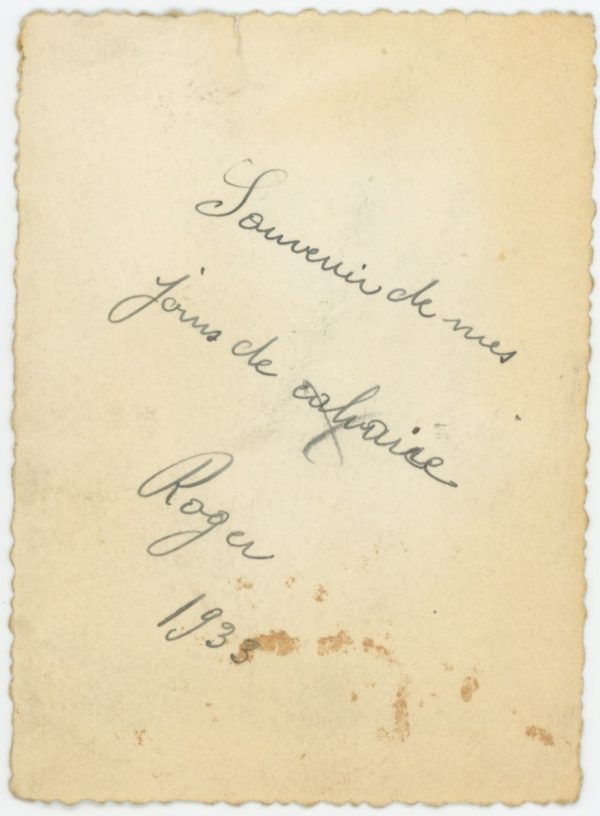 Souvenir de mes
jours de calvaire
Roger
1933